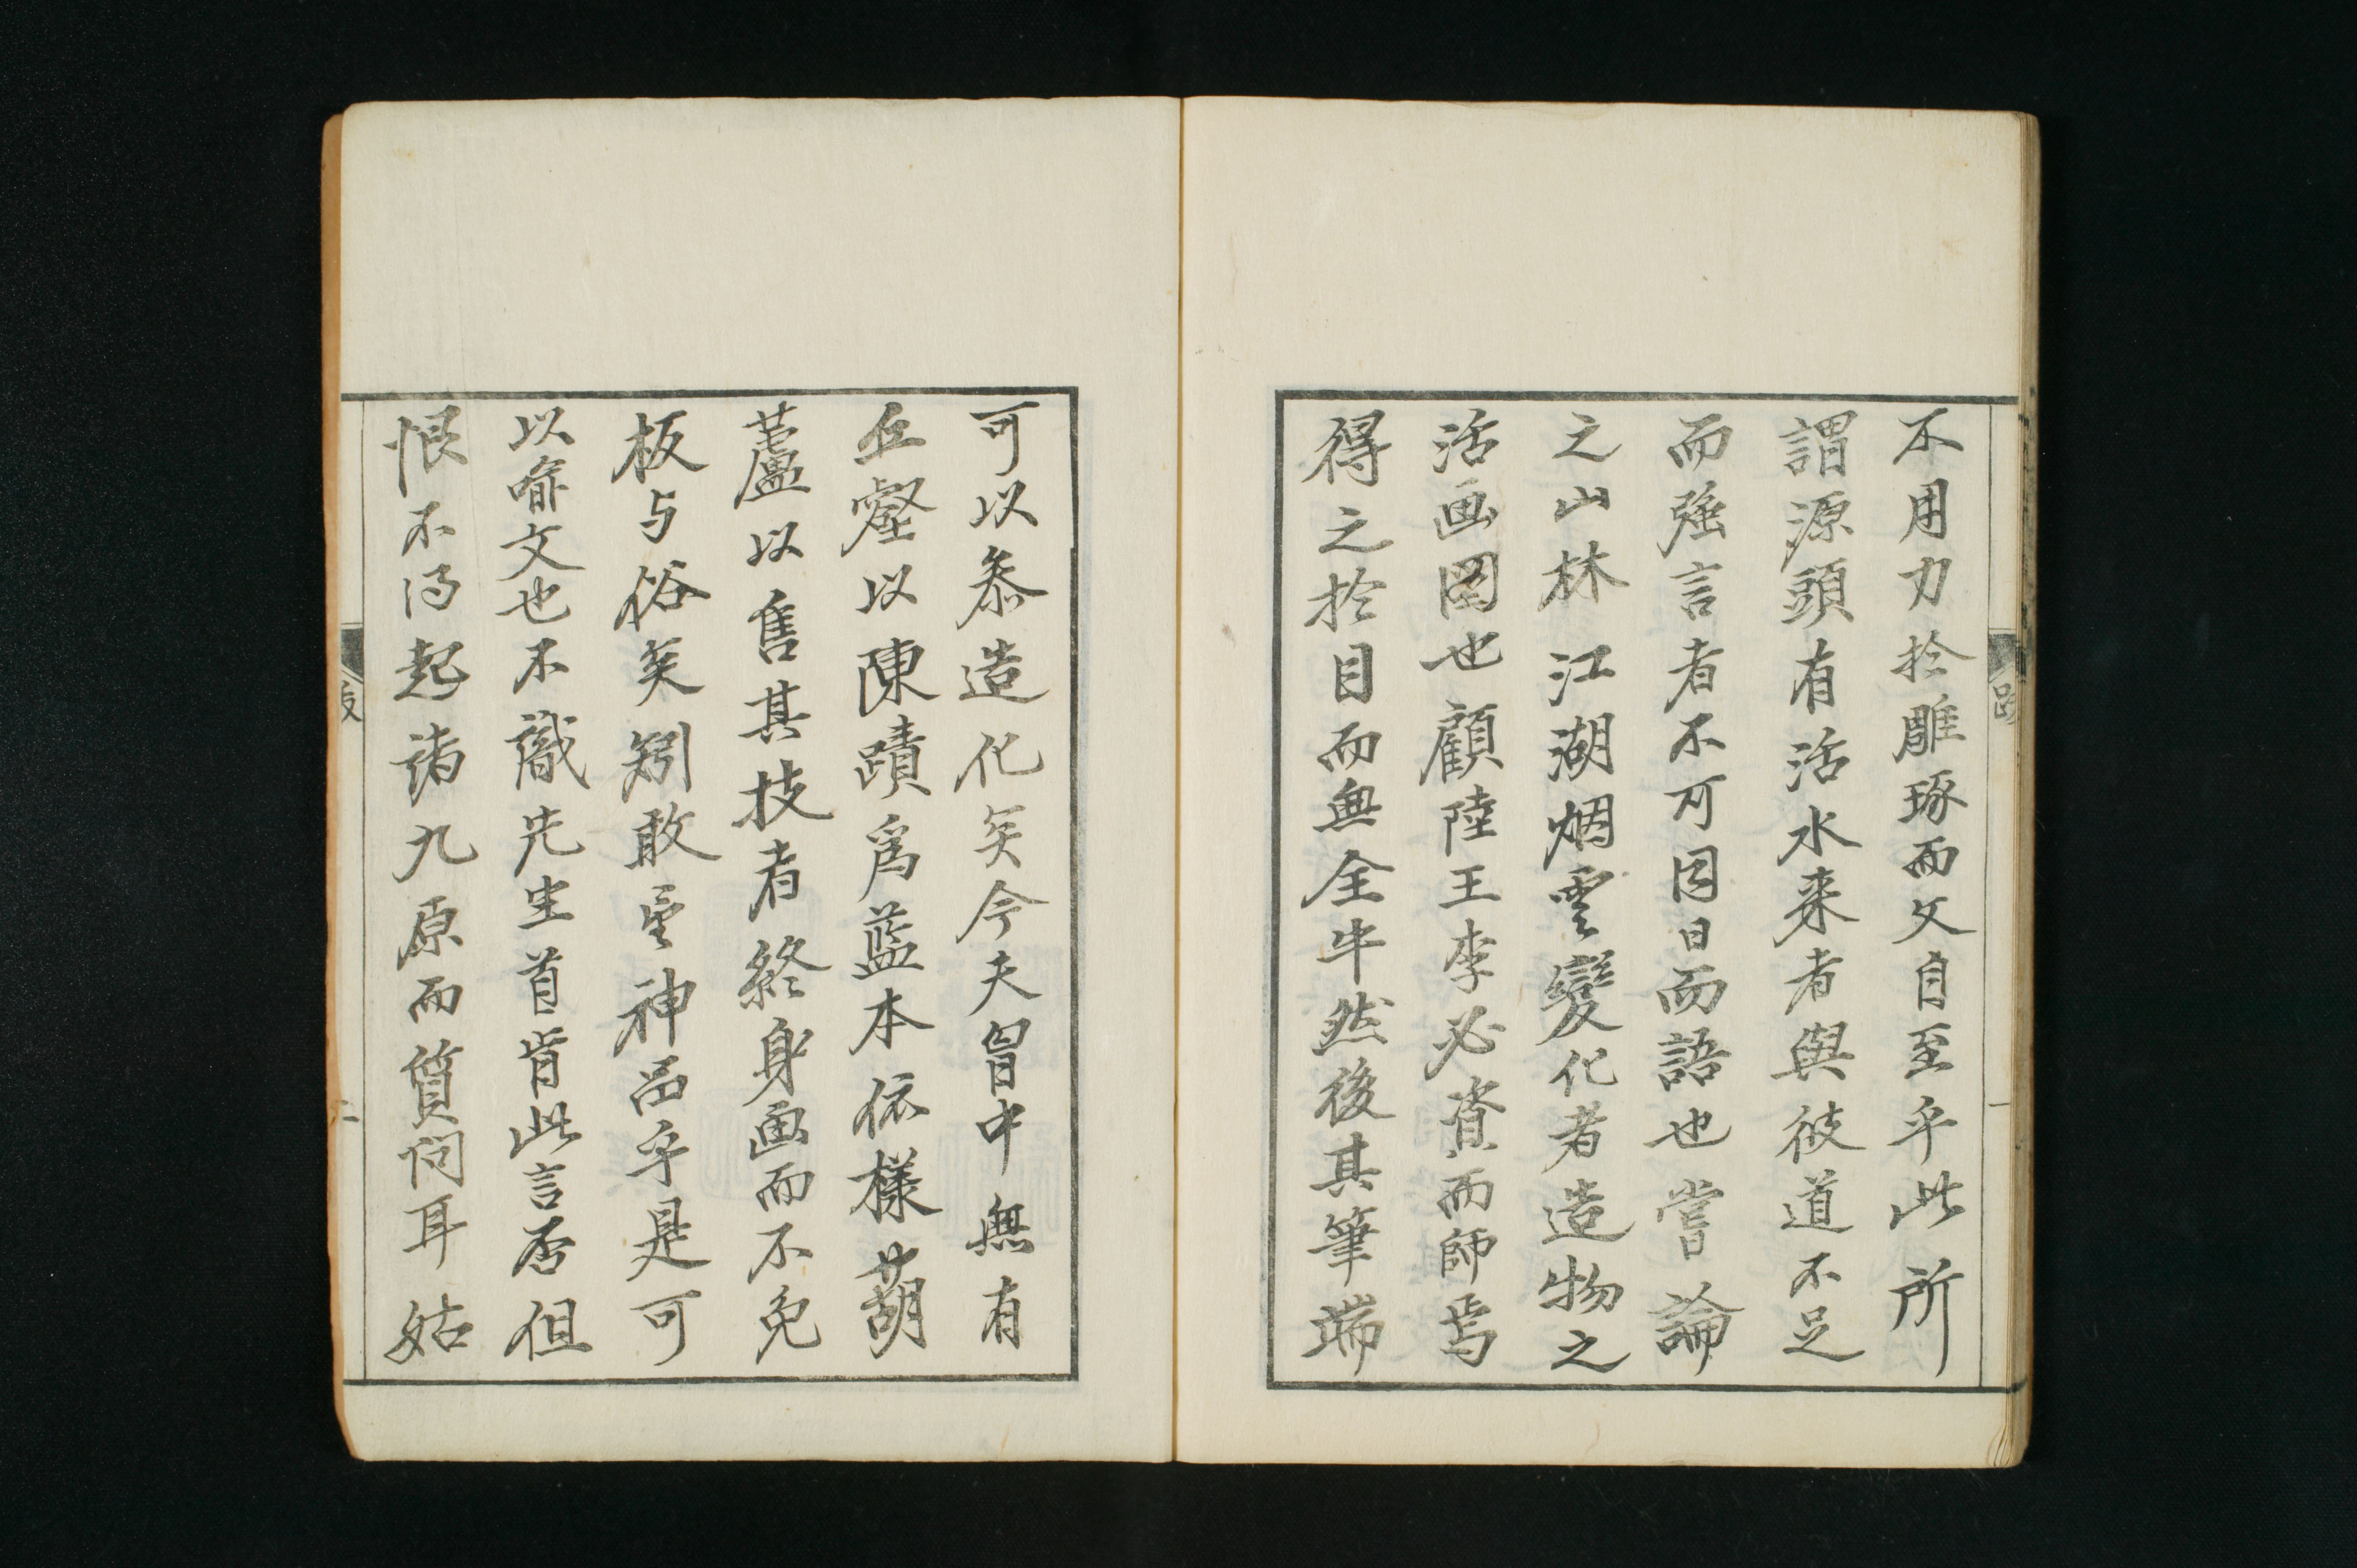 不用力於雕琢而文自至乎此所
謂源頭有活水来者與彼道不足
而強言者不可同日而語也嘗論
之山林江湖烟雲變化者造物之
活画圖也顧陸王李必資而師焉
得之於目而無全牛然後其筆端
可以叅造化矣今夫胷中無有
丘壑以陳蹟爲藍本依樣葫
蘆以售其技者終身画而不免
板与俗矣矧敢望神品乎是可
以喩文也不識先生首肯此言否但
恨不得起諸九原而質問耳姑
跋
一
跋
二